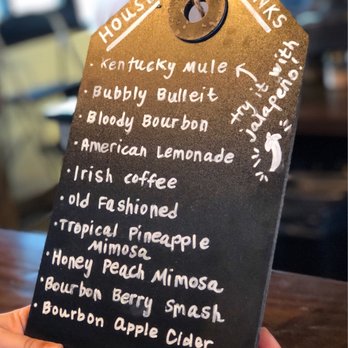 HOUSE
NKS
• Kentucky Mule
• Bubbly Bulleit
• Bloody Bourbon
• American Lemonade
• Irish coffee
• old Fashioned
• Tropical Pineapple
Mimosa
• Honey Peach Mimosa
• Bourbon Berry Smash
• Bourbon Apple Cider
try it with
jalapeño!